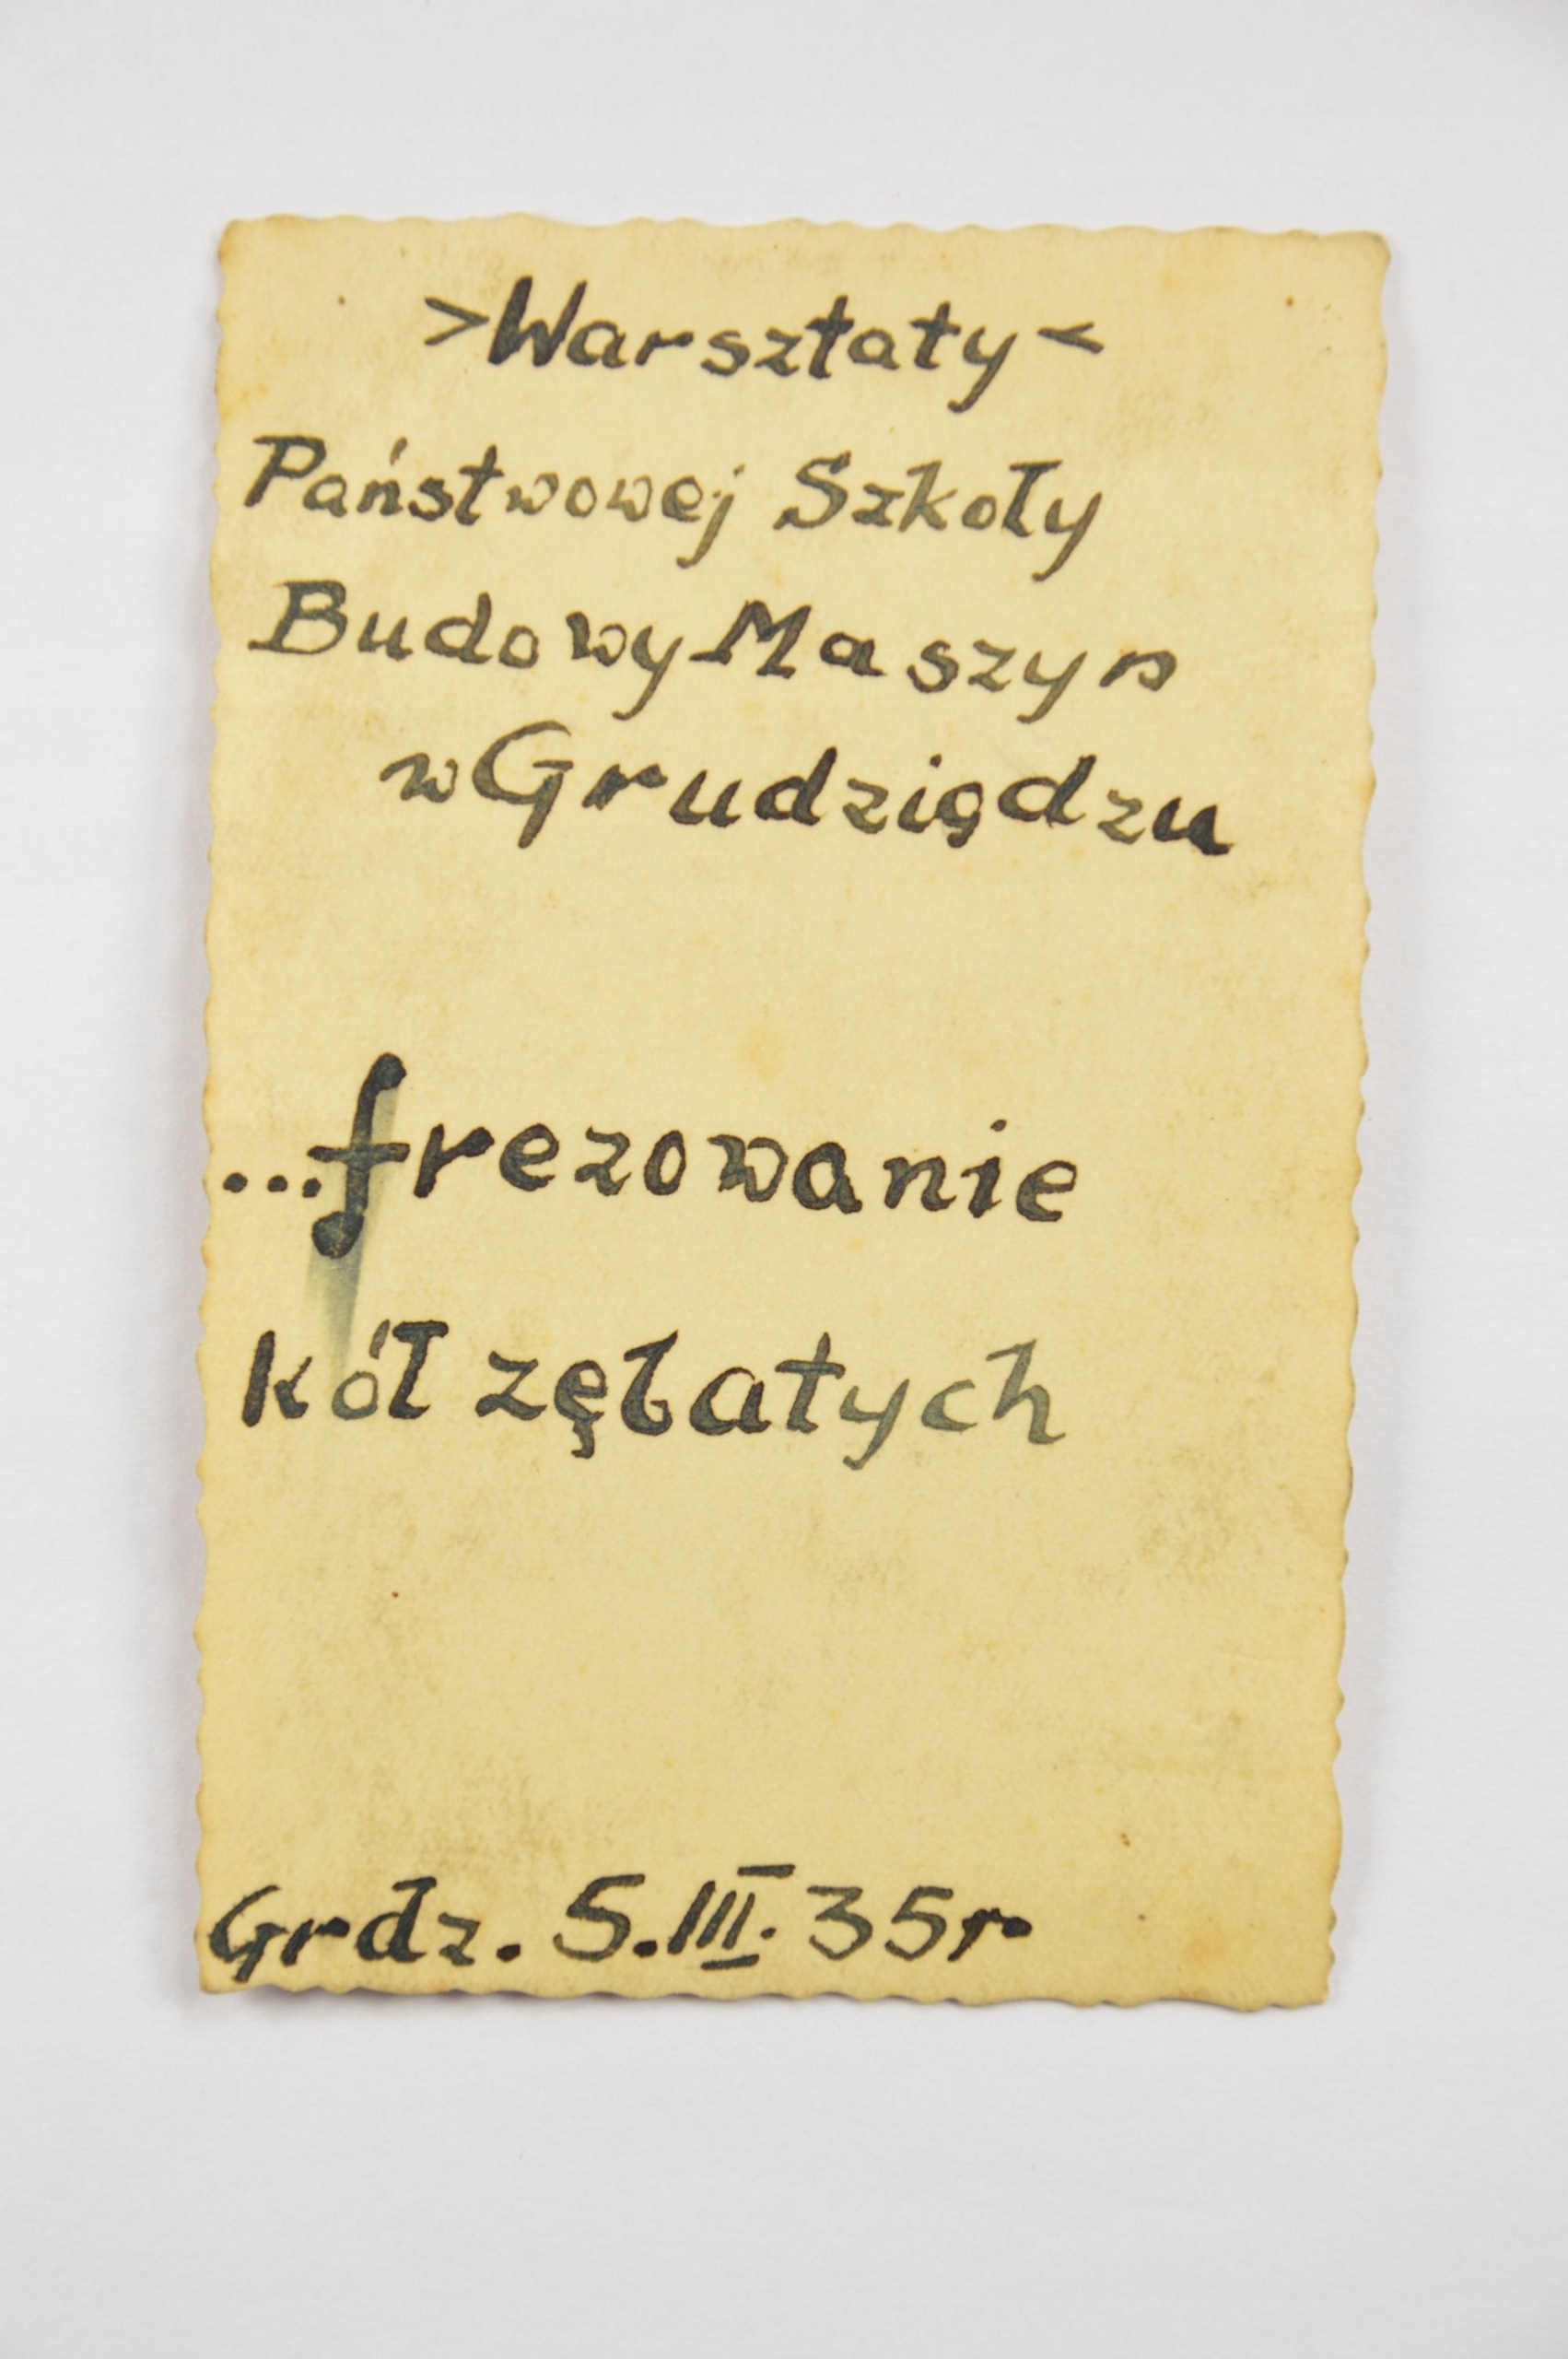 >Warsztaty<
Państwowej Szkoły
Budowy Maszyn
w Grudziądzu
...frezowanie
kół zębatych
Grdz. 5.III.35r